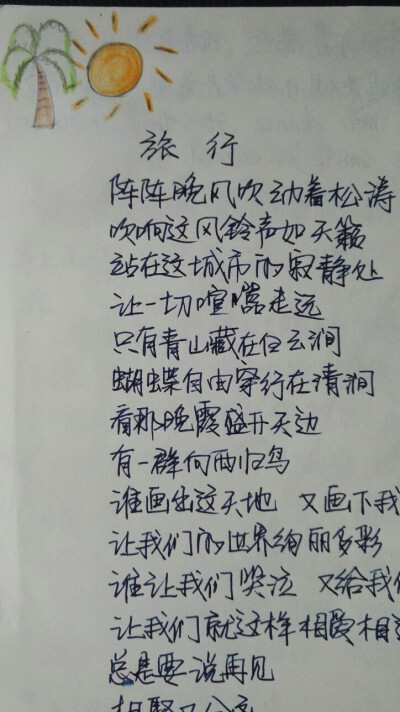 旅 行
阵阵晚风吹动着松涛
吹响这风铃声如天籁
站在这城市的寂静处
让一切喧嚣走远
只有青山藏在白云间
蝴蝶自由穿行在清涧
看那晚霞盛开天边
有一群向西归鸟
谁画出这天地 又画下我
让我们的世界绚丽多彩
谁让我们哭泣 又给我们
让我们就这样相爱相
总是要说再见
相聚又分离